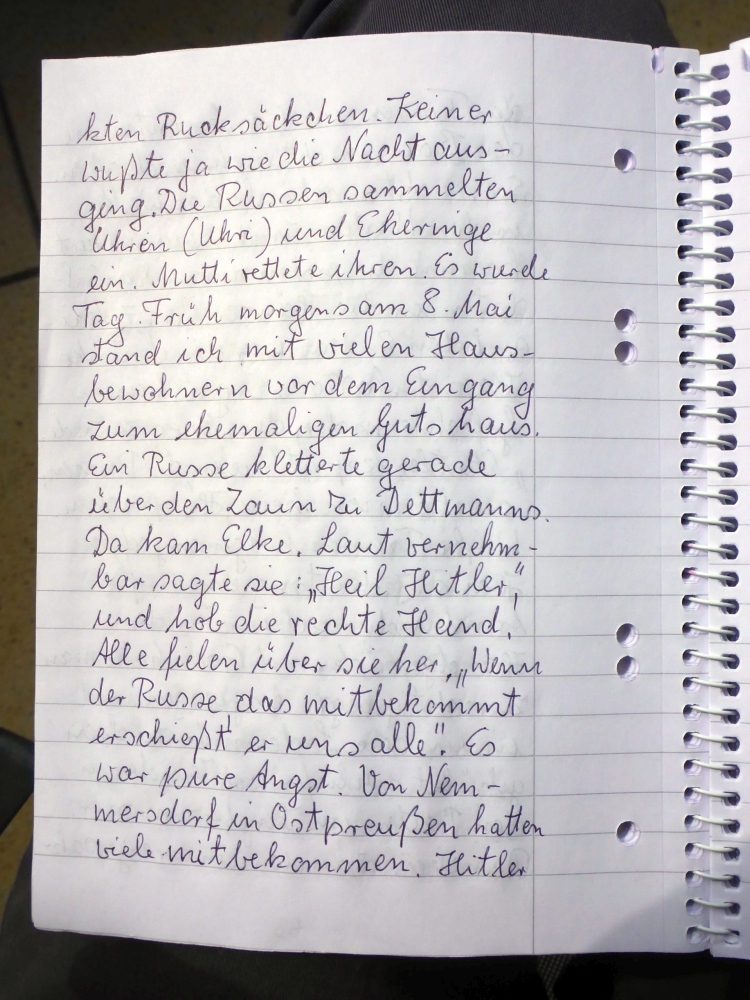 kten Rucksäckchen. Keiner
wußte ja wie die Nacht aus-
ging. Die Russen sammelten
Uhren (Uhri) und Eheringe
ein. Mutti rettete ihren. Es wurde
Tag. Früh morgens am 8. Mai
stand ich mit vielen Haus-
bewohnern vor dem Eingang
zum ehemaligen Gutshaus.
Ein Russe kletterte gerade
über den Zaun zu Dettmanns.
Da kam Elke. Laut vernehm-
bar sagte sie: „Heil Hitler,“
und hob die rechte Hand.
Alle fielen über sie her. „Wenn
der Russe das mitbekommt,
erschießt er uns alle“. Es
war pure Angst. Von Nem-
mersdorf in Ostpreußen hatten
viele mitbekommen. Hitler